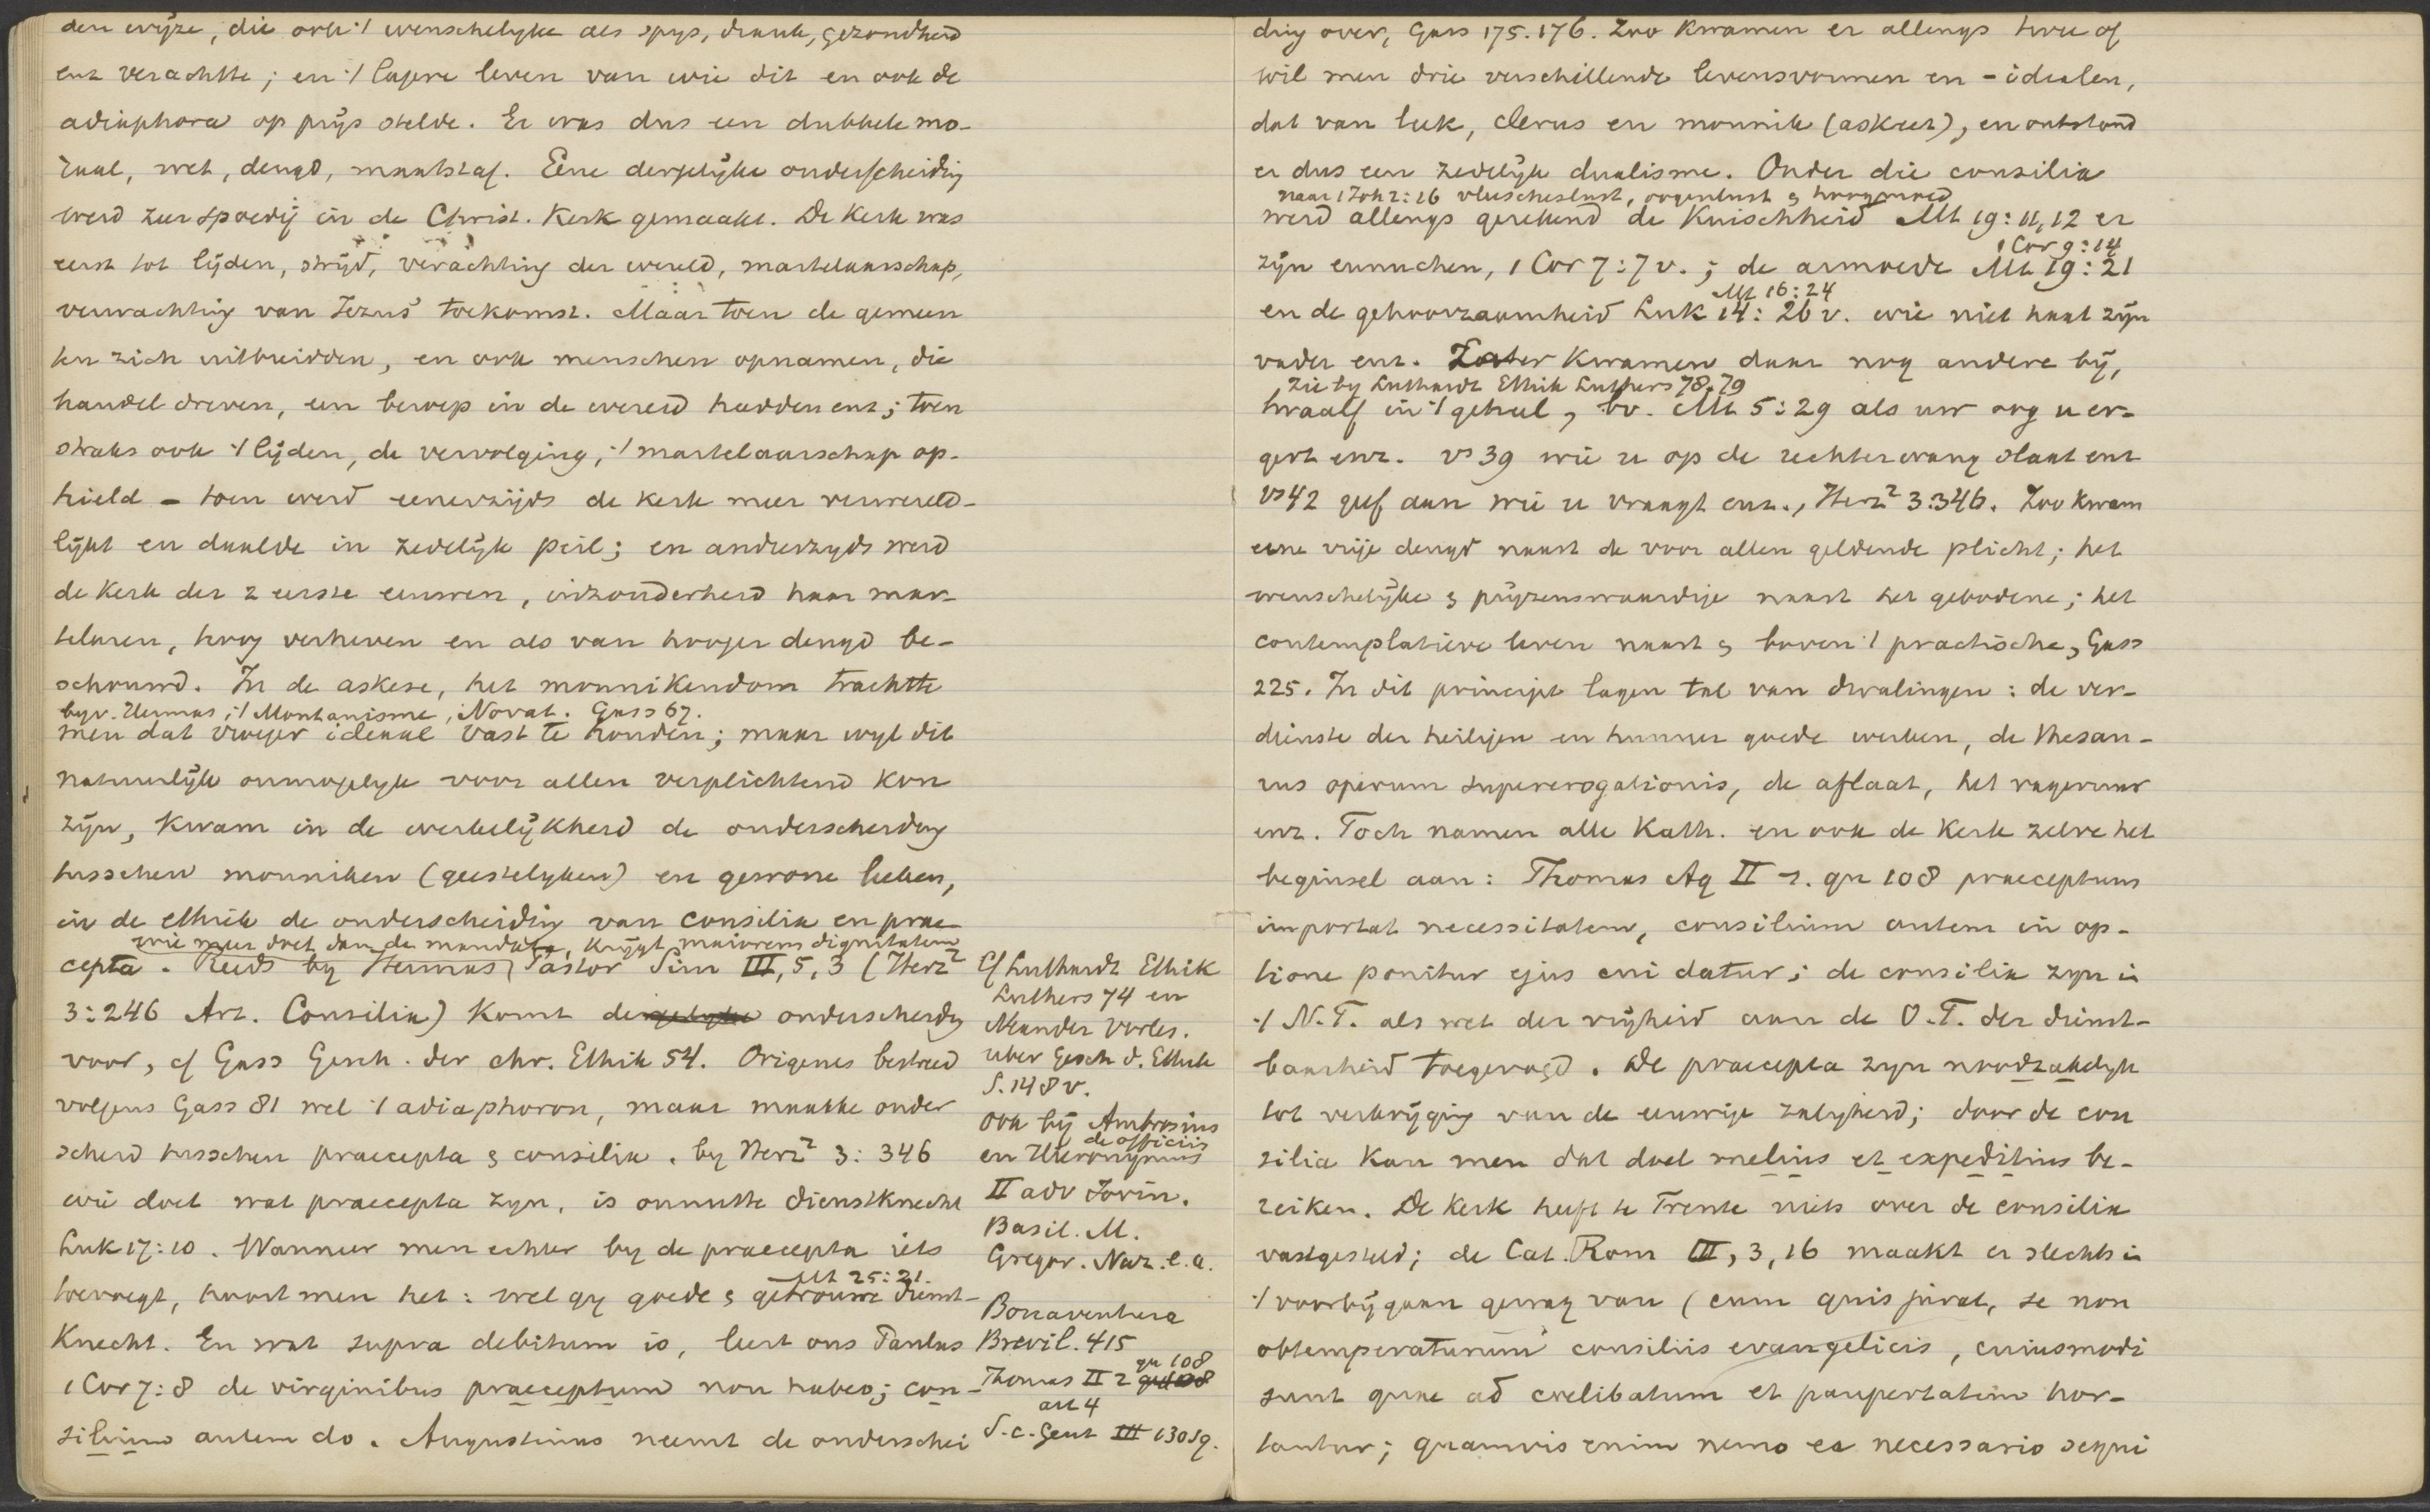 den wijze, die ook 't wenschelyke als spys, drank, gezondheid
enz verachtte; en 't lagere leven van wie dit en ook de
adiaphora op prijs stelde. Er was dus een dubbele mo-
raal, wet, deugd, maatstaf. Eene dergelijke onderscheiding
werd zeer spoedig in de Christ. Kerk gemaakt. De Kerk was
eerst tot lijden, strijd, verachting der wereld, martelaarschap,
verwachting van Jezus' toekomst. Maar toen de gemeen
ten zich uitbreidden, en ook menschen opnamen, die
handel dreven, een beroep in de wereld hadden enz; toen
straks ook 't lijden, de vervolging, 't martelaarschap op-
hield - toen werd eenerzijds de kerk meer verwereld-
lijkt en daalde in zedelijk peil; en anderzyds werd
de Kerk der 2 eerste eeuwen, inzonderheid haar mar-
telaren, hoog verheven en als van hooger deugd be-
schouwd. In de askese, het monnikendom trachtte
byv. Hermas, 't Montanisme, Novat. Gass 67.
men dat vroeger ideaal vast te houden; maar wyl dit
natuurlijk onmogelyk voor allen verplichtend kon
zijn, kwam in de werkelijkheid de onderscheiding
tusschen monniken (geestelyken) en gewone leeken,
in de ethiek de onderscheiding van consilia en prae-
wie meer doet dan de mandata, krijgt maiorem dignitatem
cepta. Reeds by Hermas, Pastor Sim III, 5, 3 (Herz²
3:246 Art. Consilia) komt dergelyke onderscheidg
voor, cf Gass Gesch. der chr. Ethik 54. Origenes bestreed
volgens Gass 81 wel 't adiaphoron, maar maakte onder
scheid tusschen praecepta & consilia. by Herz² 3:346
wie doet wat praecepta zyn, is onnutte dienstknecht
Luk 17:10. Wanneer men echter by de praecepta iets
Mt 25:21.
toevoegt, hoort men het: wel gy goede & getrouwe dienst-
Knecht. En wat supra debitum is, leert ons Paulus
1 Cor 7:8 de virginibus praeceptum non habeo; con-
silium autem do. Augustinus neemt de onderschei
Cf Luthardt Ethik
Luthers 74 en
Neander Vorles.
uber Gesch d. Ethik
S. 148 v.
ook bij Ambrosius
de officiis
en Hieronymus
II adv Jovin.
Basil. M.
Gregor. Naz. e.a.
Bonaventura
Brevil. 415
qu 108
Thomas II 2 qu 108
art 4
S. c. Gent III 130 sq.
ding over, Gass 175.176. Zoo kwamen er allengs twee of
wil men drie verschillende levensvormen en -idealen,
dat van leek, clerus en monnik (askeet), en ontstond
er dus een zedelijk dualisme. Onder die consilia
naar 1 Joh 2:16 vleescheslust, oogenlust & hoogmoed
werd allengs gerekend de Kuischheid Mt 19:11,12 er
1 Cor 9:14
zijn eunuchen, 1 Cor 7:7 v.; de armoede Mt 19:21
Mt 16:24
en de gehoorzaamheid Luk 14:26 v. wie niet haat zijn
vader enz. Later kwamen daar nog andere bij,
zie by Luthardt Ethik Luthers 78.79
twaalf in 't geheel, bv. Mt 5:29 als uw oog u er-
gert enz. vs 39 wie u op de rechterwang slaat enz
vs 42 geef aan wie u vraagt enz., Herz² 3:346. Zoo kwam
eene vrije deugd naast de voor allen geldende plicht; het
wenschelijke & prijzenswaardige naast het gebodene; het
contemplatieve leven naast & boven 't practische, Gass
225. In dit principe lagen tal van dwalingen: de ver-
dienste der heiligen en hunner goede werken, de thesau-
rus operum supererogationis, de aflaat, het vagevuur
enz. Toch namen alle Kath. en ook de Kerk zelve het
beginsel aan: Thomas Aq II 1. qu 108 praeceptum
importat necessitatem, consilium autem in op-
tione ponitur ejus cui datur; de consilia zyn in
't N.T. als wet der vrijheid aan de O.T. der dienst-
baarheid toegevoegd. De praecepta zyn noodzakelyk
tot verkrijging van de eeuwige zaligheid; door de con
silia kan men dat doel melius et expeditius be-
reiken. De Kerk heeft te Trente niets over de consilia
vastgesteld; de Cat. Rom III, 3, 16 maakt er slechts in
't voorbijgaan gewag van (cum quis jurat, se non
obtemperaturum consiliis evangelicis, cuiusmodi
sunt quae ad coelibatum et paupertatem hor-
tantur; quamvis enim nemo ea necessario sequi